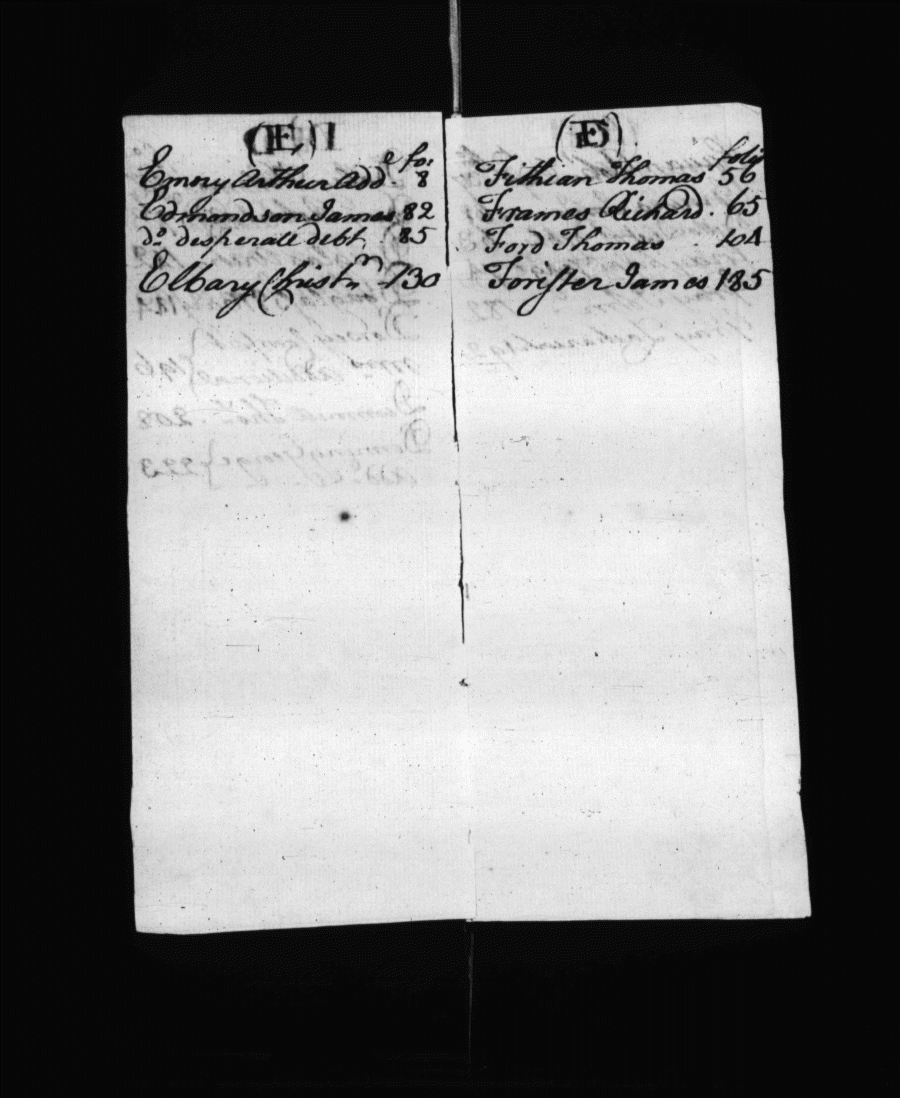 (E)
fo:
Emory Arthur Add.e 8
Edmondson James 82
do desperate debt 85
Elbary Christn 730
(F)
folio
Fithian Thomas 56
Frames Richard. 65
Ford Thomas 104
Forister James 185